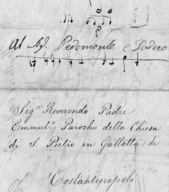 Al Sig. Pedemonte e Podero
Sigr Reverendo Padre
Emmuel, Parocho della Chiesa
di S. Pietro in Gallatta di
Costantinopoli